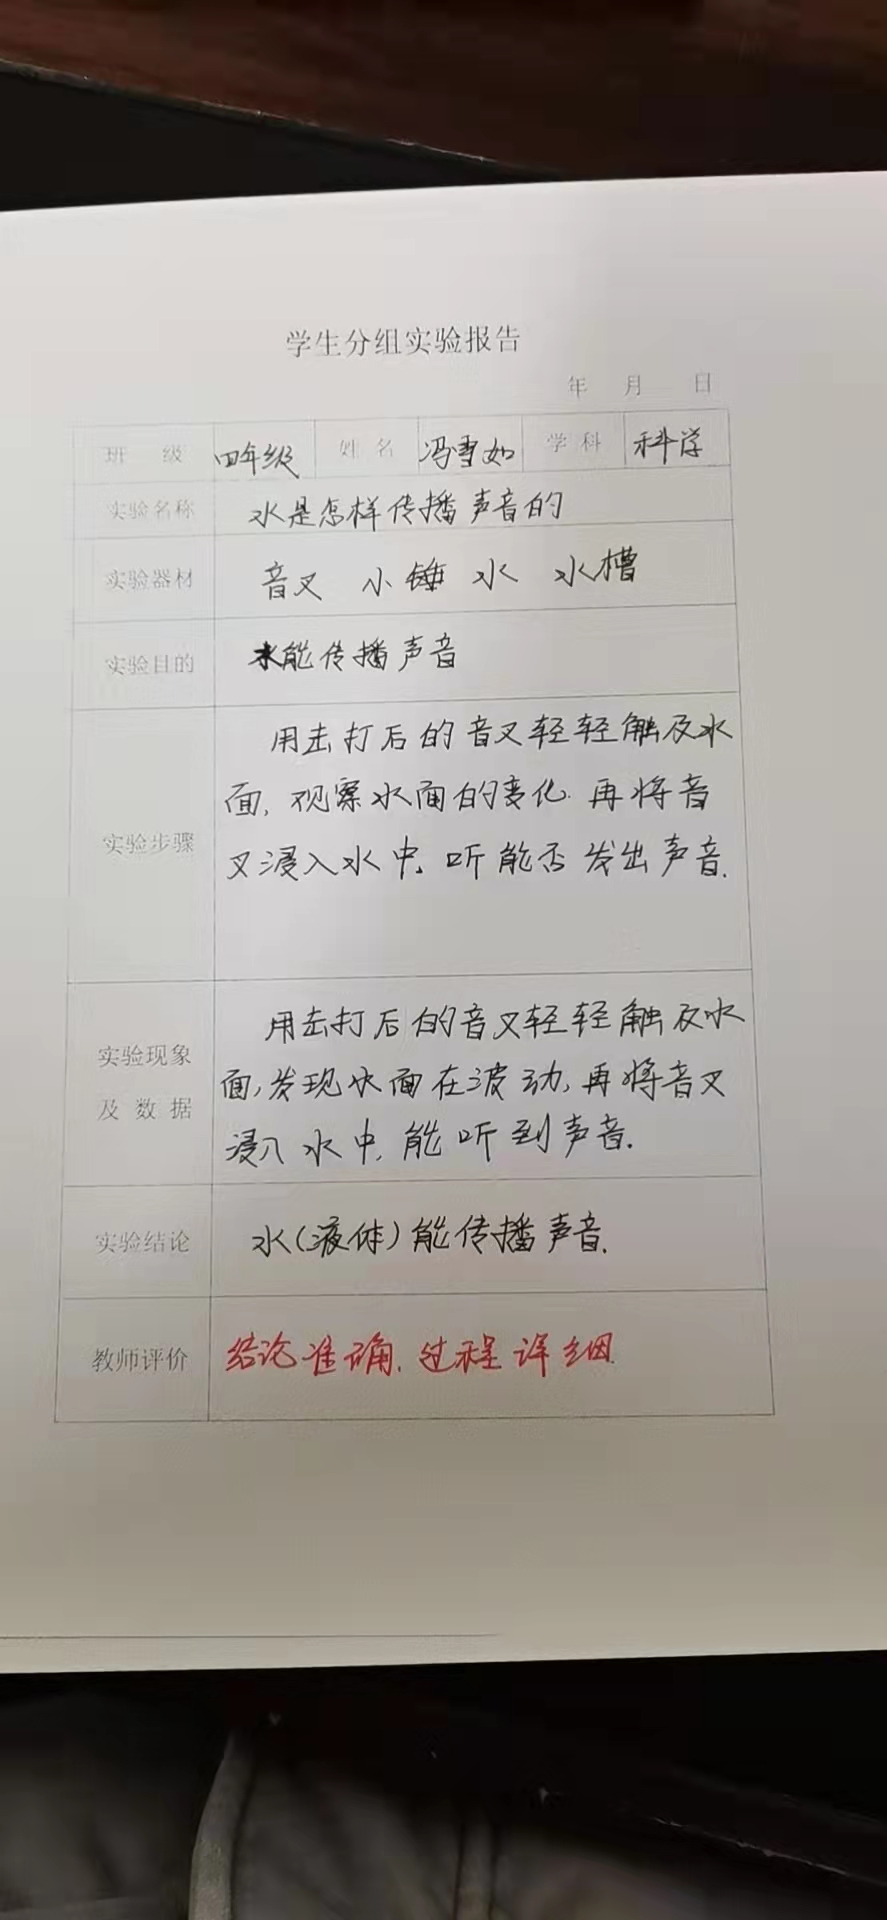 学生分组实验报告
年 月 日
班 级 四年级 姓 名 冯雪如 学 科 科学
实验名称 水是怎样传播声音的
实验器材 音叉 小锤 水 水槽
实验目的 水能传播声音
实验步骤
用击打后的音叉轻轻触及水
面,观察水面的变化.再将音
叉浸入水中.听能否发出声音.
实验现象
及 数 据
用击打后的音叉轻轻触及水
面,发现水面在波动,再将音叉
浸入水中,能听到声音.
实验结论 水(液体)能传播声音.
教师评价 结论准确.过程详细.